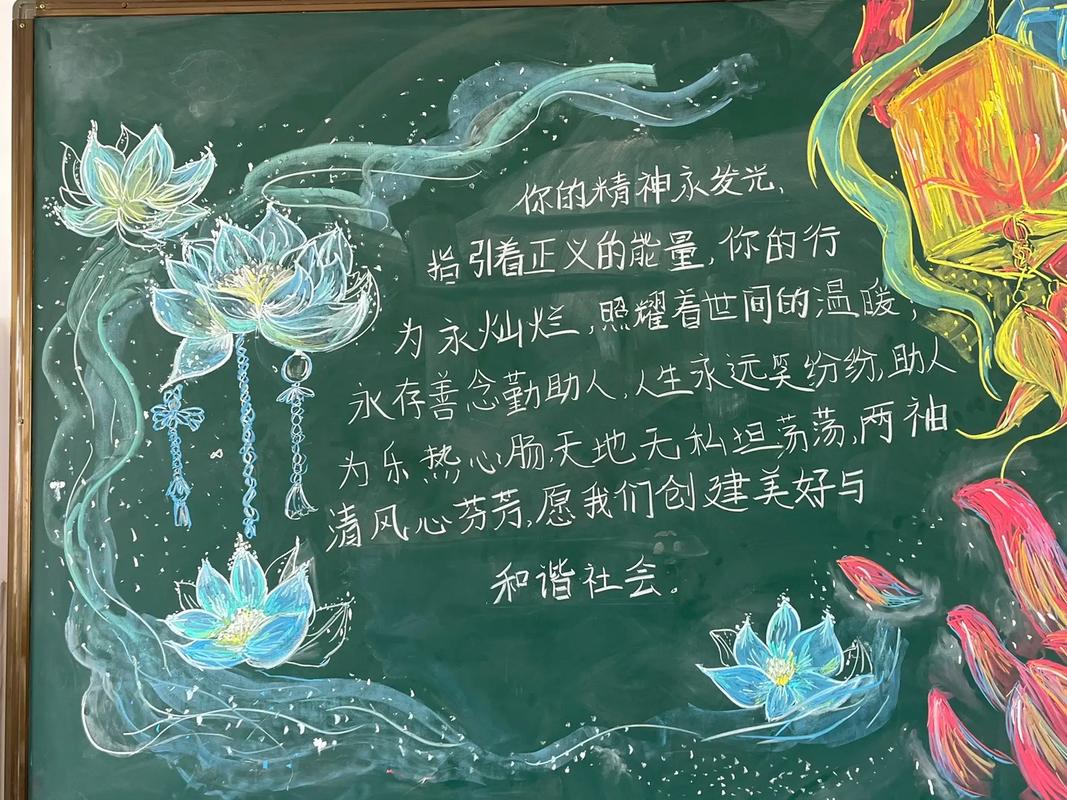 你的精神永发光,
指引着正义的能量,你的行
为永灿烂,照耀着世间的温暖,
永存善念勤助人,人生永远笑纷纷,助人
为乐热心肠,天地无私坦荡荡,两袖
清风心芬芳,愿我们创建美好与
和谐社会。